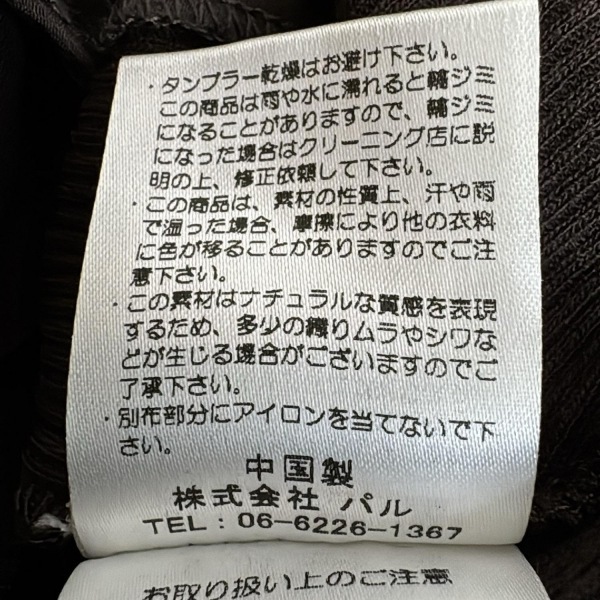 ・タンブラー乾燥はお避け下さい。
この商品は雨や水に濡れると輪ジミ
になることがありますので、輪ジミ
になった場合はクリーニング店に説
明の上、修正依頼して下さい。
・この商品は、素材の性質上、汗や雨
で湿った場合、摩擦により他の衣料
に色が移ることがありますのでご注
意下さい。
・この素材はナチュラルな質感を表現
するため、多少の織りムラやシワな
どが生じる場合がございますのでご
了承下さい。
・別布部分にアイロンを当てないで下
さい。
中国製
株式会社 パル
TEL：06-6226-1367
お取り扱い上のご注意